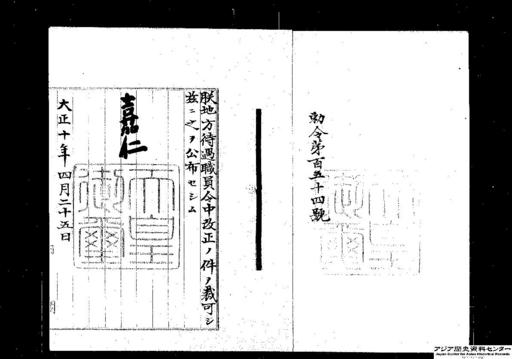 勅令第百五十四號
朕地方待遇職員令中改正ノ件ヲ裁可シ
茲ニ之ヲ公布セシム
嘉仁
大正十年四月二十五日
天皇御璽
アジア歴史資料センター
Japan Center for Asian Historical Records